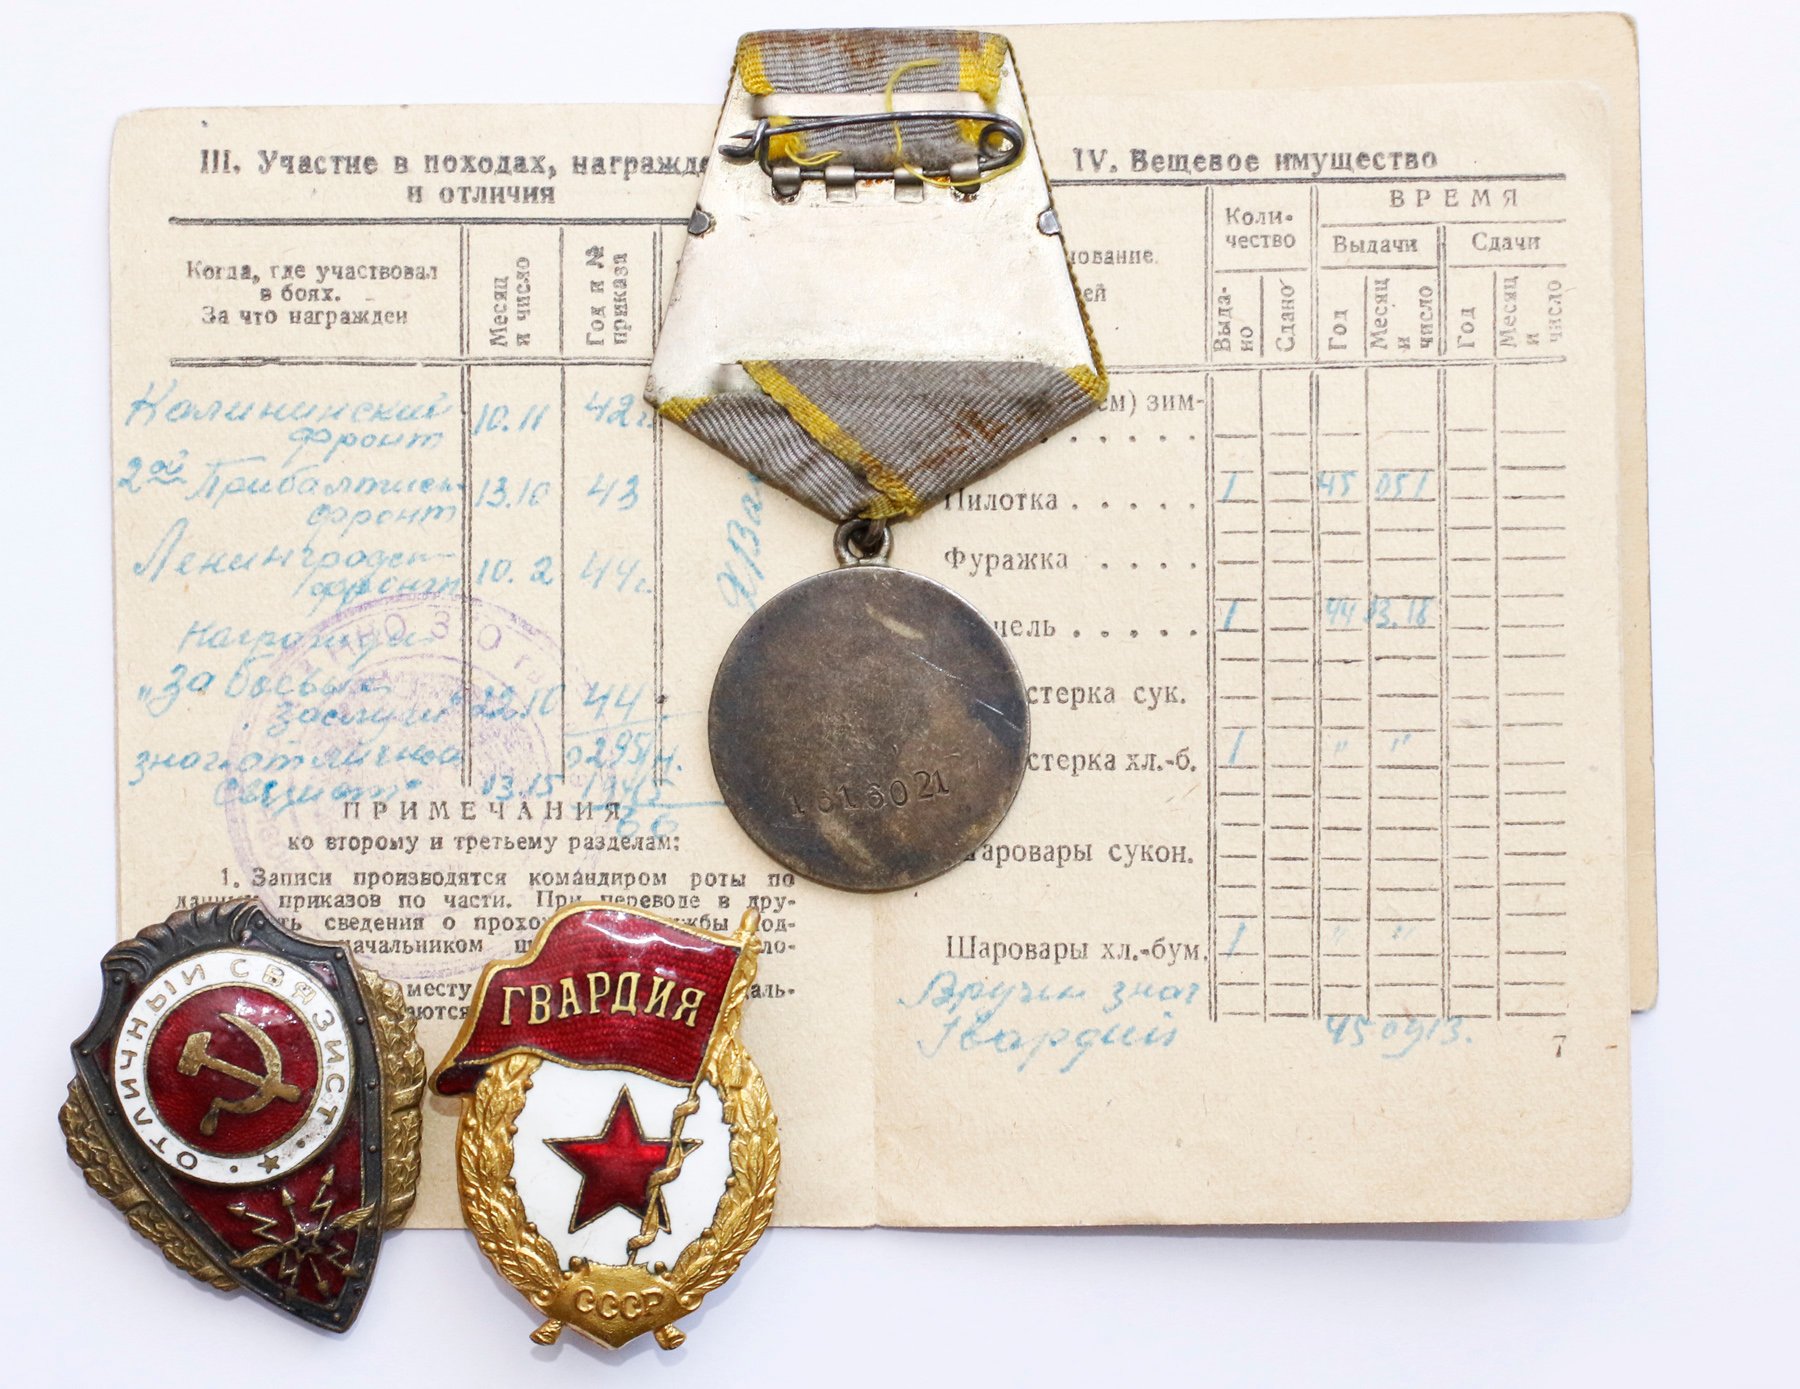 III. Участие в походах, награжде
и отличия
Когда, где участвовал
в боях.
За что награжден
Месяц
и число
Год и №
приказа
Калининский
фронт
10.11
42г.
2ой Прибалтийск-
фронт
13.10
43
Ленинградск-
фронт
10.2
44г.
Награжден
"За боевые
заслуги"
22.10
44
знак отличный
связист"
13.15
1945
66
НКО ЗТО
ПРИМЕЧАНИЯ
ко второму и третьему разделам:
1. Записи производятся командиром роты по
данным приказов по части. При переводе в дру-
ть сведения о прохо жбы под-
начальником ло-
месту даль-
аются
IV. Вещевое имущество
нование
ей
Коли-
чество
ВРЕМЯ
Выдачи
Сдачи
Выда-
но
Сдано
Год
Месяц
и
число
Год
Месяц
и
число
ем) зим-
Пилотка . . . . .
1
45
051
Фуражка . . . .
нель . . . . .
1
44
03.18
стерка сук.
стерка хл.-б.
1
"
"
аровары сукон.
Шаровары хл.-бум.
1
"
"
Вручен знак
Гвардий
45 09 13.
7
1616021
ОТЛИЧНЫЙ СВЯЗИСТ
ГВАРДИЯ
СССР